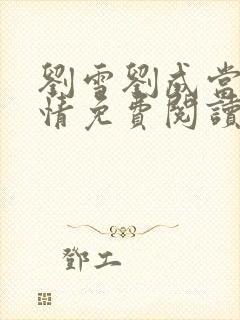 劉雪劉成當
情免費閱讀
鄧工